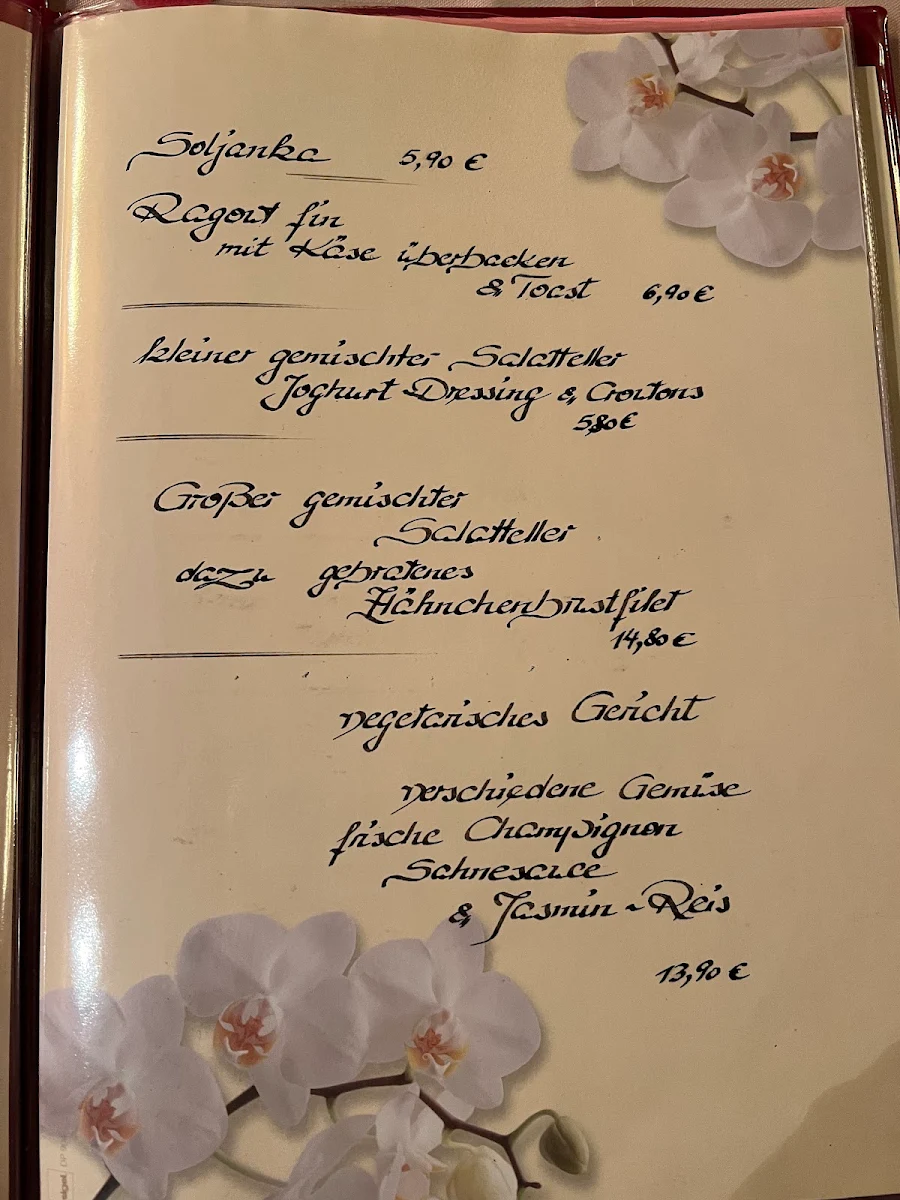 Soljanka 5,90 €
Ragout fin
mit Käse überbacken
& Toast 6,90 €
kleiner gemischter Salatteller
Joghurt-Dressing & Croutons
5,80 €
Großer gemischter
Salatteller
dazu gebratenes
Hähnchenbrustfilet
14,80 €
vegetarisches Gericht
verschiedene Gemüse
frische Champignon
Sahnesauce
& Jasmin-Reis
13,90 €